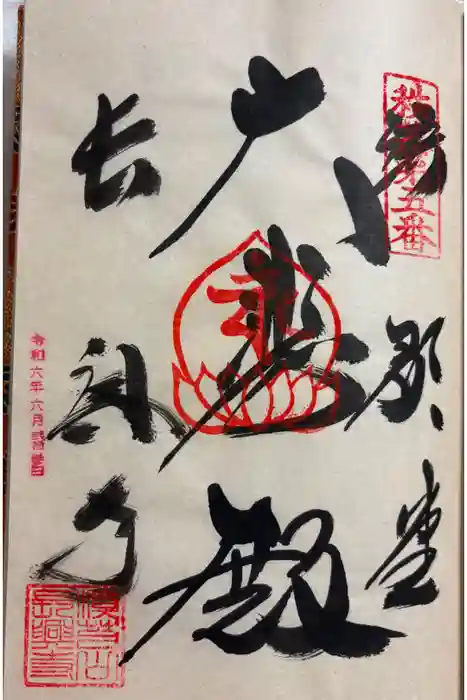 秩父第五番
語歌堂
大悲殿
長興寺
令和六年六月
長興寺